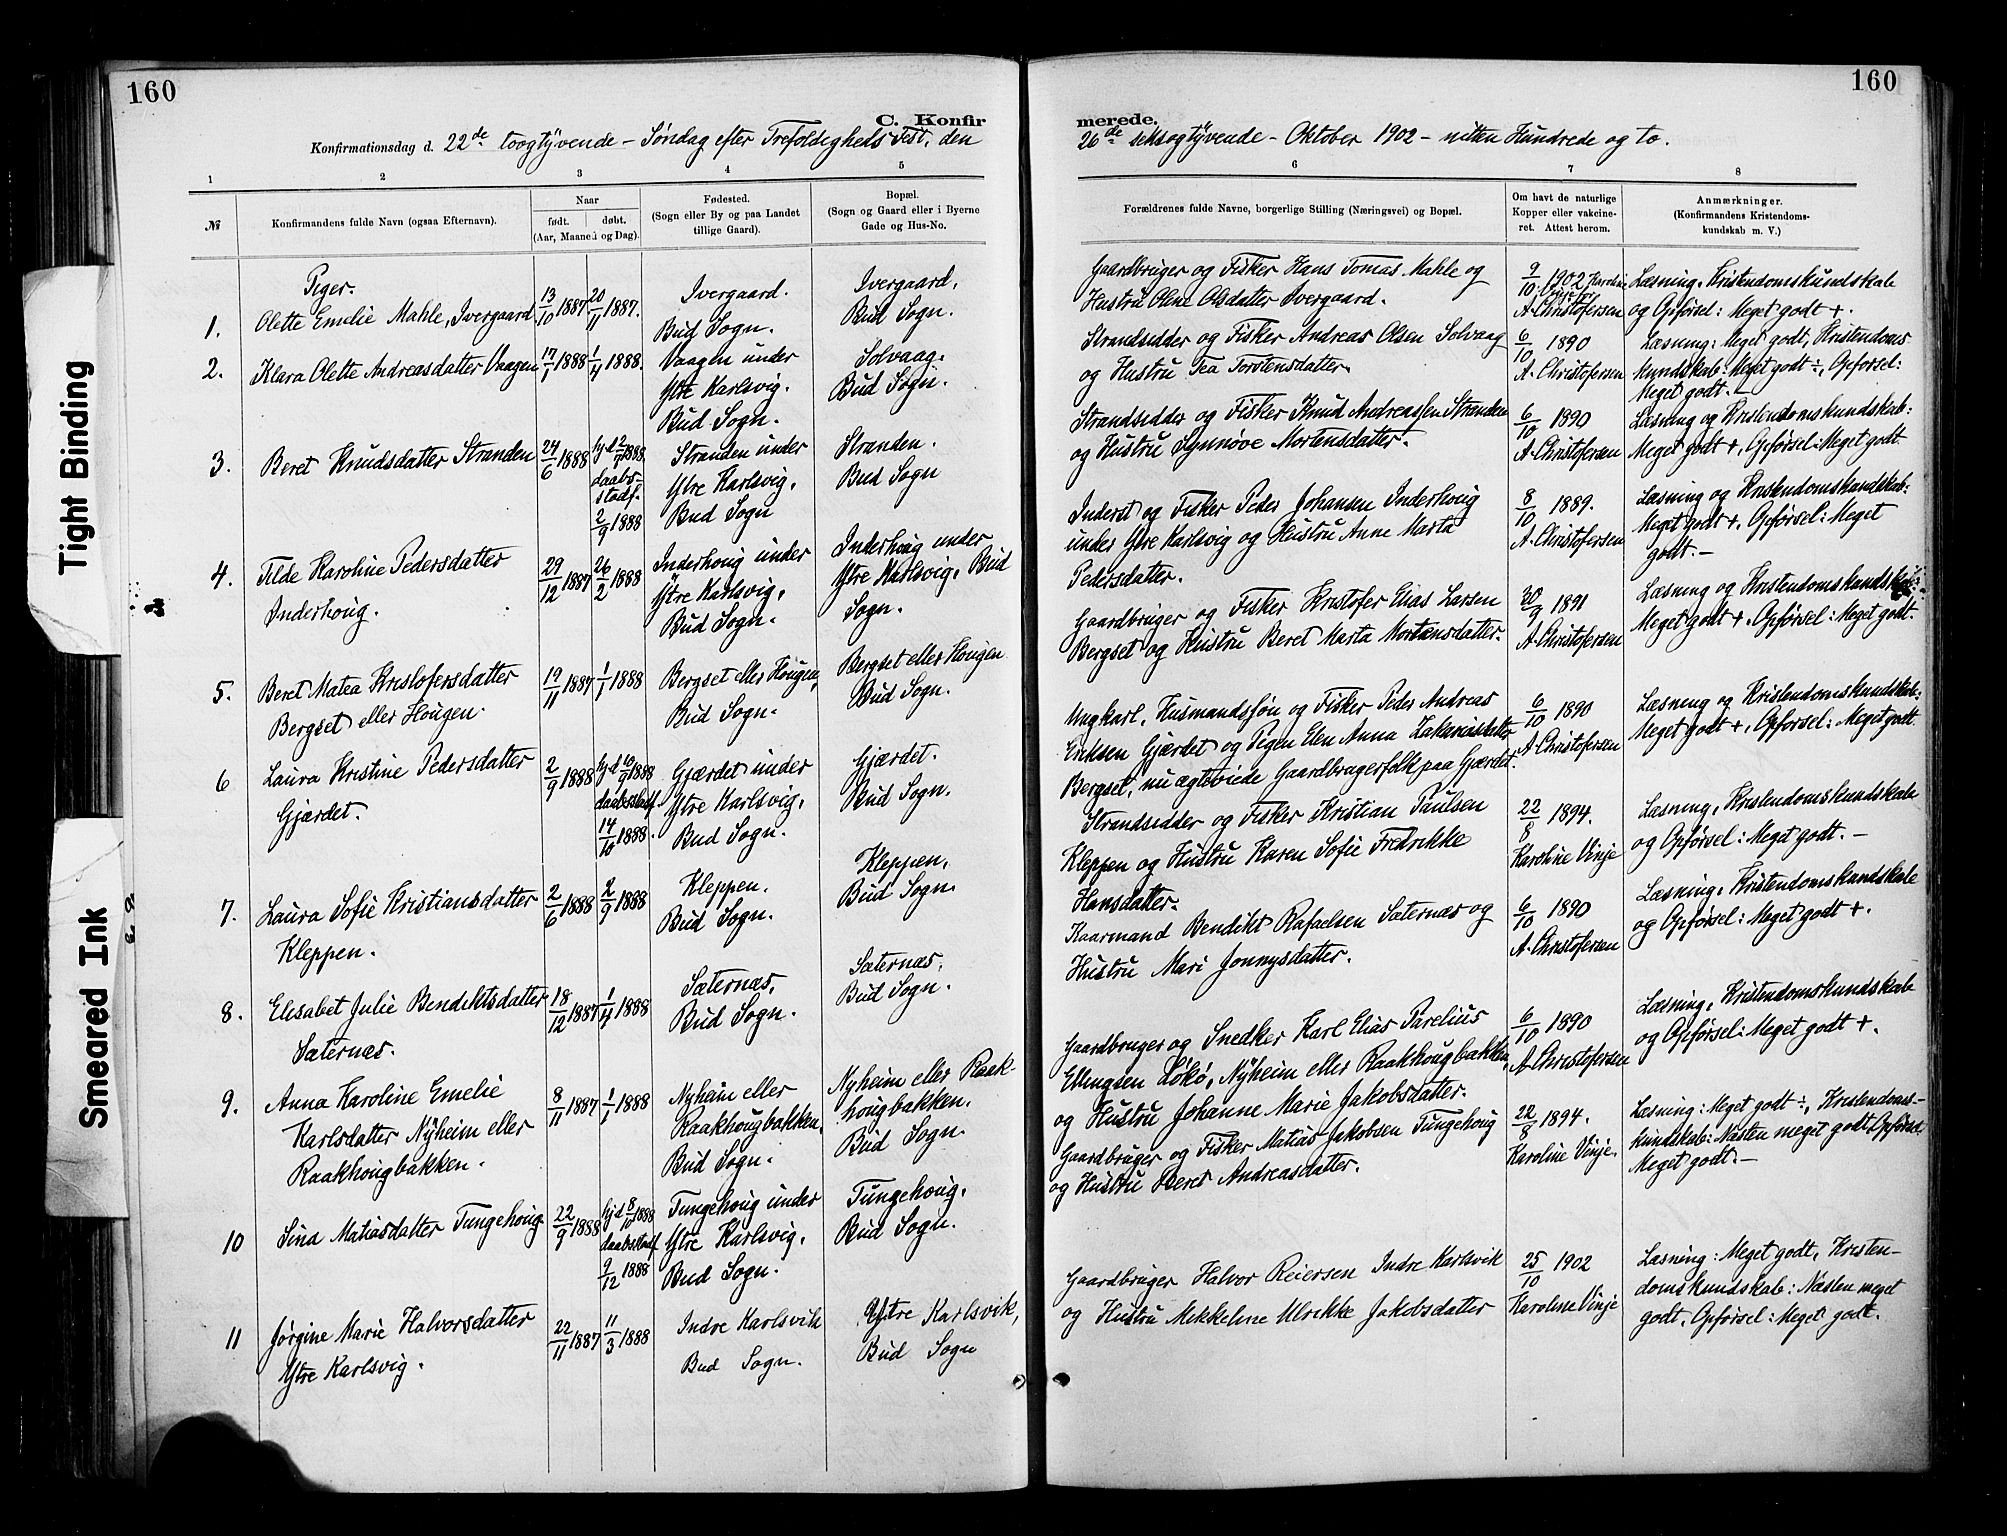 160
C. Konfir
Konfirmationsdag d. 22de toogtÿvende – Søndag efter Trefoldigheds Fest, den
1 2 3 4 5
№
Konfirmandens fulde Navn (ogsaa Efternavn).
Naar
født. døbt.
(Aar, Maaned og Dag).
Fødested.
(Sogn eller By og paa Landet
tillige Gaard).
Bopæl.
(Sogn og Gaard eller i Byerne
Gade og Hus-No.
Piger.
1. Olette Emelie Mahle, Ivergaard 13/10 1887 20/11 1887. Ivergaard. Bud Sogn. Ivergaard, Bud Sogn.
2. Klara Olette Andreasdatter Vaagen 17/1 1888 1/4 1888. Vaagen under Ytre Karlsvig. Bud Sogn. Solvaag. Bud Sogn.
3. Beret Knudsdatter Stranden 24/6 1888 hj. d. 2/9 1888 daabs-stadf. 2/9 1888 Stranden under Ytre Karlsvig, Bud Sogn Stranden. Bud Sogn
4. Tilde Karoline Pedersdatter Inderhoug. 29/12 1887 26/2 1888 Inderhoug under Ytre Karlsvig, Bud Sogn. Inderhoug under Ytre Karlsvig, Bud Sogn.
5. Beret Matea Kristofersdatter Bergset eller Hougen. 19/11 1887 1/1 1888 Bergset eller Hougen, Bud Sogn. Bergset eller Hougen Bud Sogn.
6 Laura Kristine Pedersdatter Gjærdet. 2/9 1888 hj. d. 10/9 1888 daabsstadf. 14/10 1888. Gjærdet under Ytre Karlsvig, Bud Sogn. Gjærdet. Bud Sogn.
7. Laura Sofie Kristiansdatter Kleppen. 2/6 1888 2/9 1888 Kleppen. Bud Sogn. Kleppen, Bud Sogn.
8. Elisabet Julie Bendiktsdatter Sæternæs. 18/12 1887 1/4 1888 Sæternæs, Bud Sogn. Sæternæs, Bud Sogn.
9. Anna Karoline Emelie Karlsdatter Nÿheim eller Raakhougbakken. 8/11 1887 1/1 1888 Nyheim eller Raakhougbakken, Bud Sogn. Nyheim eller Raak-hougbakken. Bud Sogn.
10 Sina Matiasdatter Tungehoug 22/9 1888 hj. d. 8/10 1888 daabsstadf. 9/12 1888 Tungehoug under Ytre Karlsvig, Bud Sogn. Tungehoug, Bud Sogn.
11 Jørgine Marie Halvorsdatter Ytre Karlsvig. 22/11 1887 11/3 1888 Indre Karlsvik Bud Sogn. Ytre Karlsvik, Bud Sogn
160
merede.
26de seksogtÿvende – Oktober 1902 – nitten Hundrede og to.
6 7 8
Forældrenes fulde Navne, borgerlige Stilling (Næringsvei) og Bopæl.
Om havt de naturlige
Kopper eller vakcine-
ret. Attest herom.
Anmærkninger.
(Konfirmandens Kristendoms-
kundskab m. V.)
Gaardbruger og Fisker Hans Tomas Mahle og Hustru Oline Olsdatter Ivergaard. 9/10 1902 A. Christofersen Læsning, Kristendomskundskab og Opførsel: Meget godt +.
Strandsidder og Fisker Andreas Olsen Solvaag og Hustru Tea Torstensdatter. 6/10 1890 A. Christofersen Læsning: Meget godt, Kristendoms kundskab: Meget godt ÷, Opførsel: Meget godt. –
Strandsidder og Fisker Knud Andreassen Stranden og Hustru Synnøve Mortensdatter. 6/10 1890 A. Christofersen Læsning og Kristendomskundskab: Meget godt +, Opførsel: Meget godt
Inderst og Fisker Peder Johansen Inderhoug under Ytre Karlsvig og Hustru Anne Marta Pedersdatter. 8/10 1889. A. Christofersen Læsning og Kristendomskundskab: Meget godt +, Opførsel: Meget godt. –
Gaardbruger og Fisker Kristofer Elias Larsen Bergset og Hustru Beret Marta Mortensdatter. 30/9 1891 A. Christofersen Læsning og Kristendomskundskab: Meget godt +, Opførsel: Meget godt.
Ungkarl, Husmandssøn og Fisker Peder Andreas Eriksen Gjærdet og Pigen Elen Anna Zakariasdatter Bergset, nu ægteviede Gaardbrugerfolk paa Gjærdet. 6/10 1890 A. Christofersen Læsning og Kristendomskundskab: Meget godt +, Opførsel: Meget godt
Strandsidder og Fisker Kristian Paulsen Kleppen og Hustru Karen Sofie Fredrikke Hansdatter. 22/8 1894. Karoline Vinje Læsning, Kristendomskundskab og Opførsel: Meget godt. –
Kaarmand Bendikt Rafaelsen Sæternæs og Hustru Mari Jonnysdatter. 6/10 1890 A. Christofersen Læsning, Kristendomskundskab og Opførsel: Meget godt +.
Gaardbruger og Snedker Karl Elias Parelius Ellingsen Løkø, Nÿheim eller Raakhougbakken, og Hustru Johanne Marie Jakobsdatter. 6/10 1890 A. Christofersen Læsning, Kristendomskundskab og Opførsel: Meget godt +.
Gaardbruger og Fisker Matias Jakobsen Tungehoug og Hustru Beret Andreasdatter. 22/8 1894. Karoline Vinje. Læsning: Meget godt ÷, Kristendoms-kundskab: Næsten meget godt, Opførsel Meget godt. –
Gaardbruger Halvor Reiersen Indre Karlsvik og Hustru Mekkeline Ulrikke Jakobsdatter 25/10 1902 Karoline Vinje Læsning: Meget godt, Kristen-domskundskab: Næsten meget godt, Opførsel: Meget godt.
Tight Binding
Smeared Ink